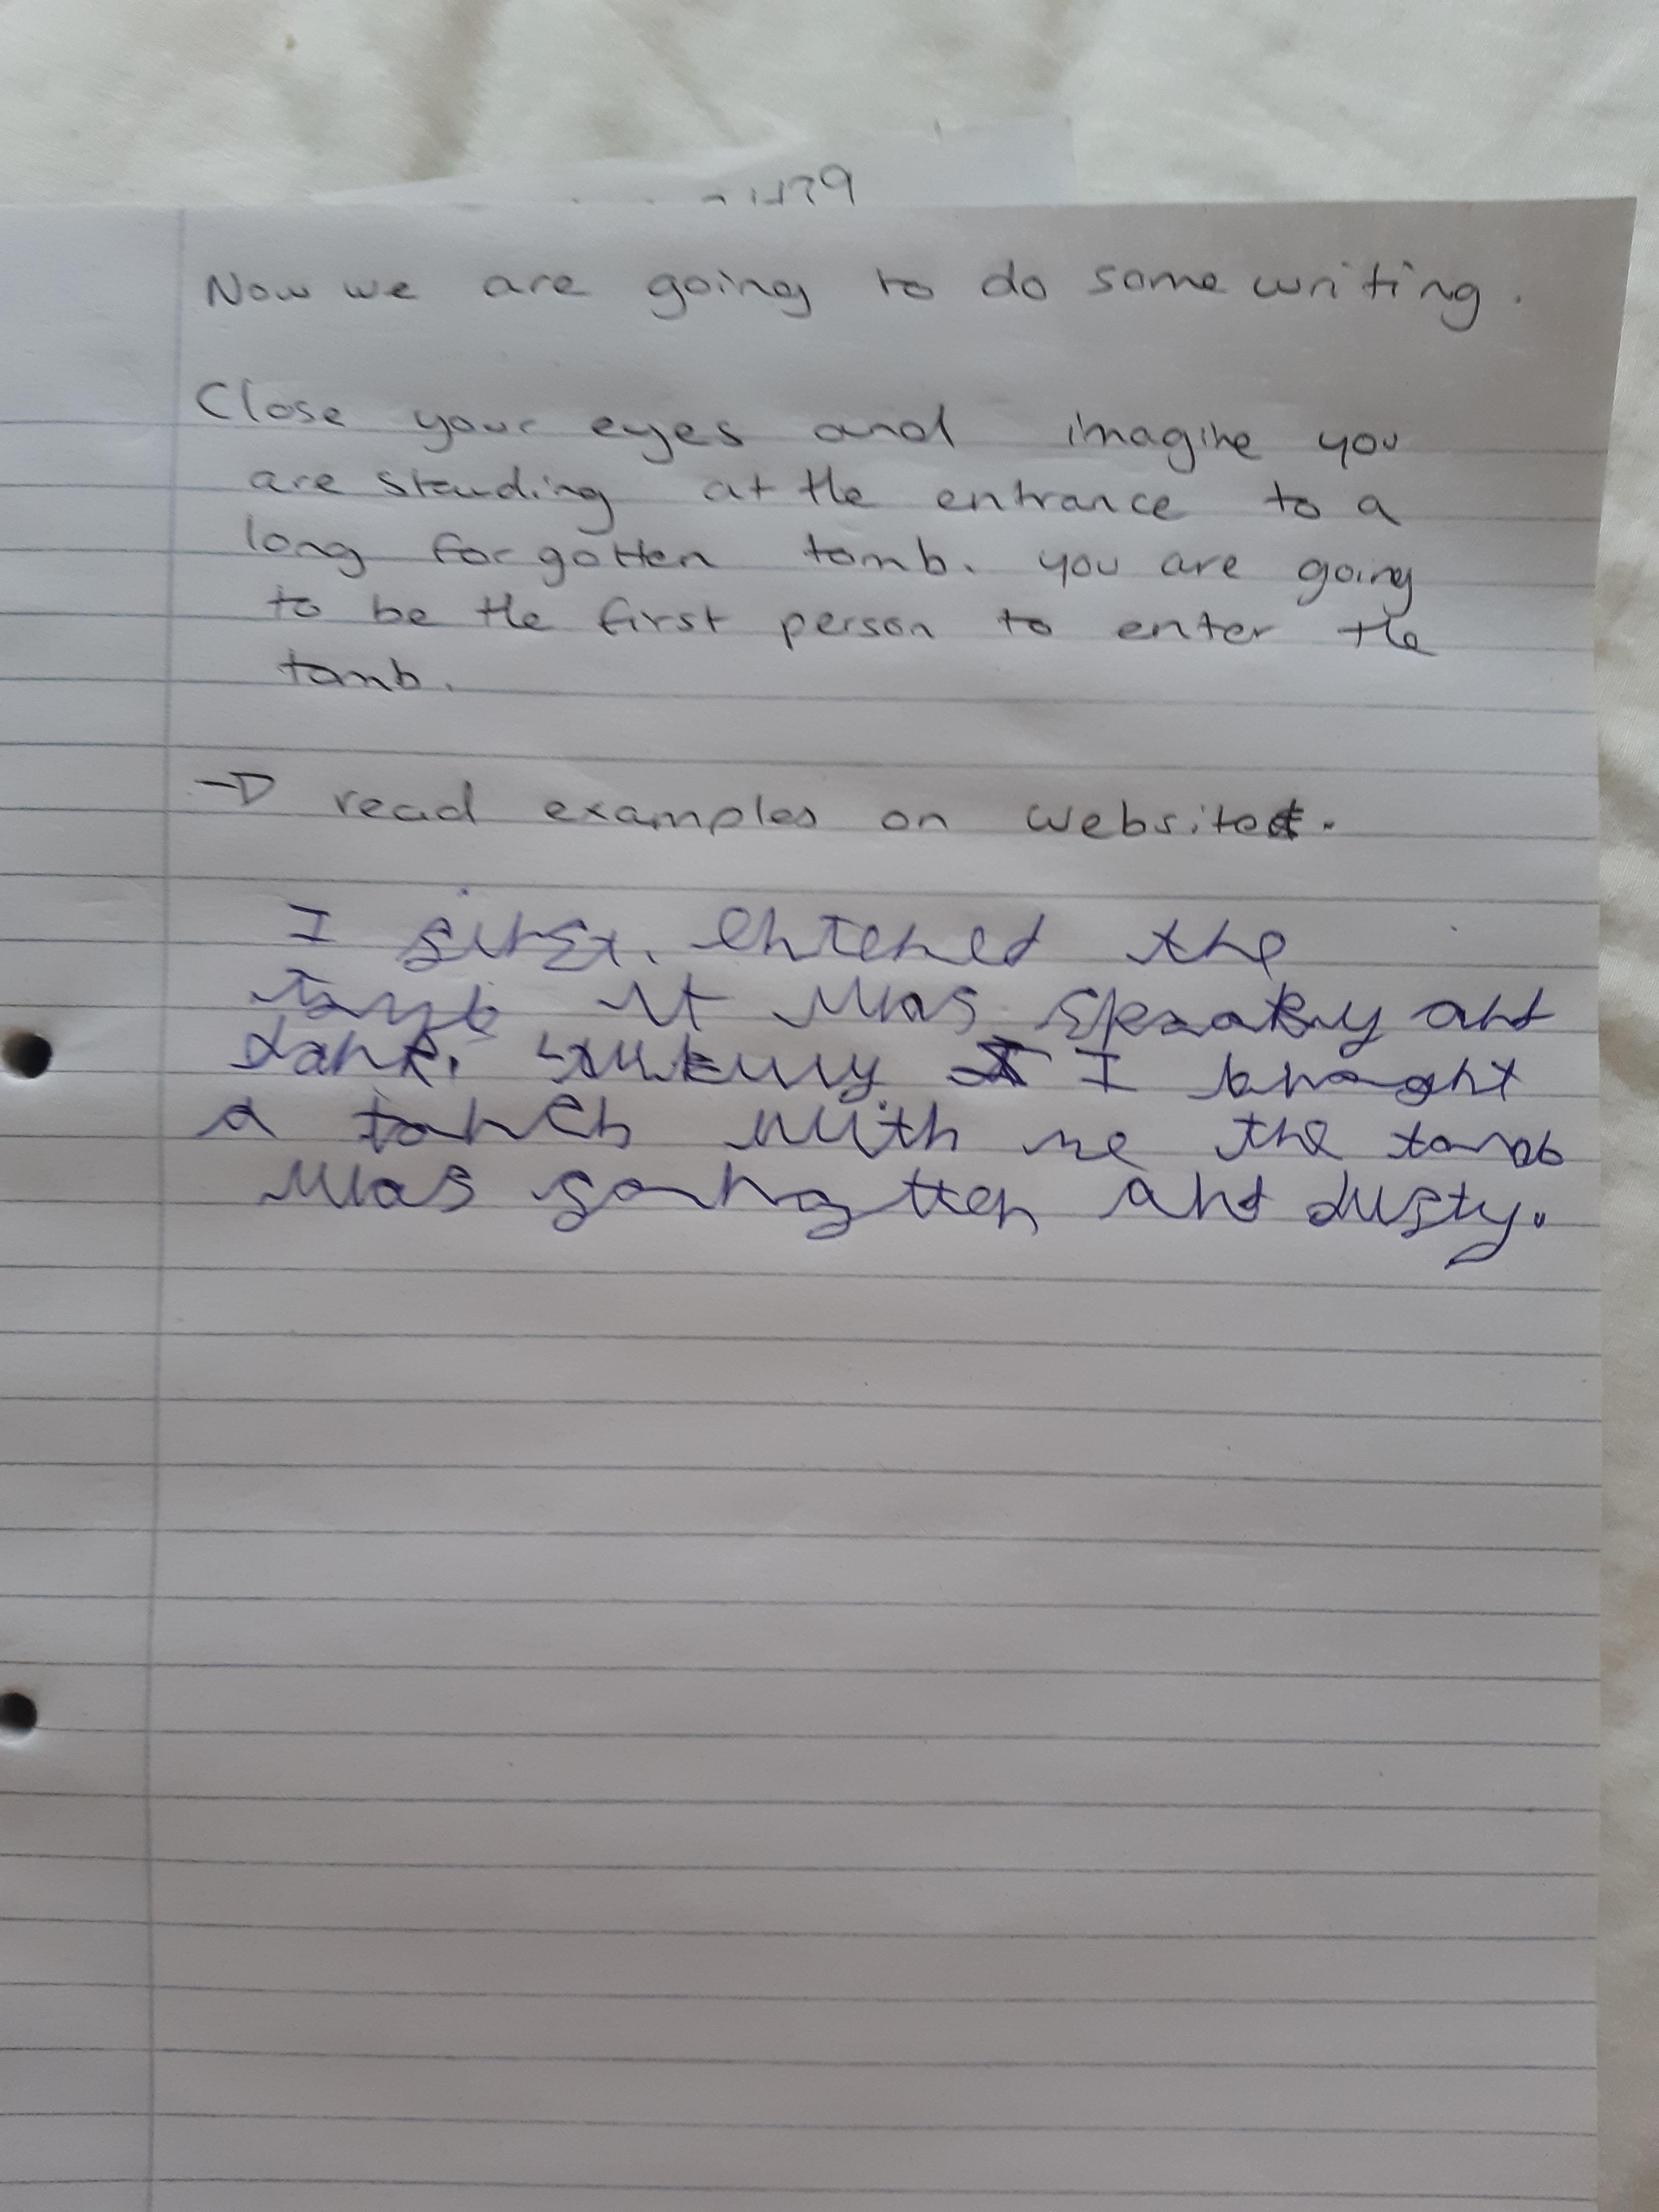 Now we are going to do some writing.
Close your eyes and imagine you
are standing at the entrance to a
long forgotten tomb. you are going
to be the first person to enter the
tomb.
→ read examples on website.
I first. entered the
tomb it was spooky and
dark. luckily I brought
a torch with me the tomb
was forgotten and dusty.